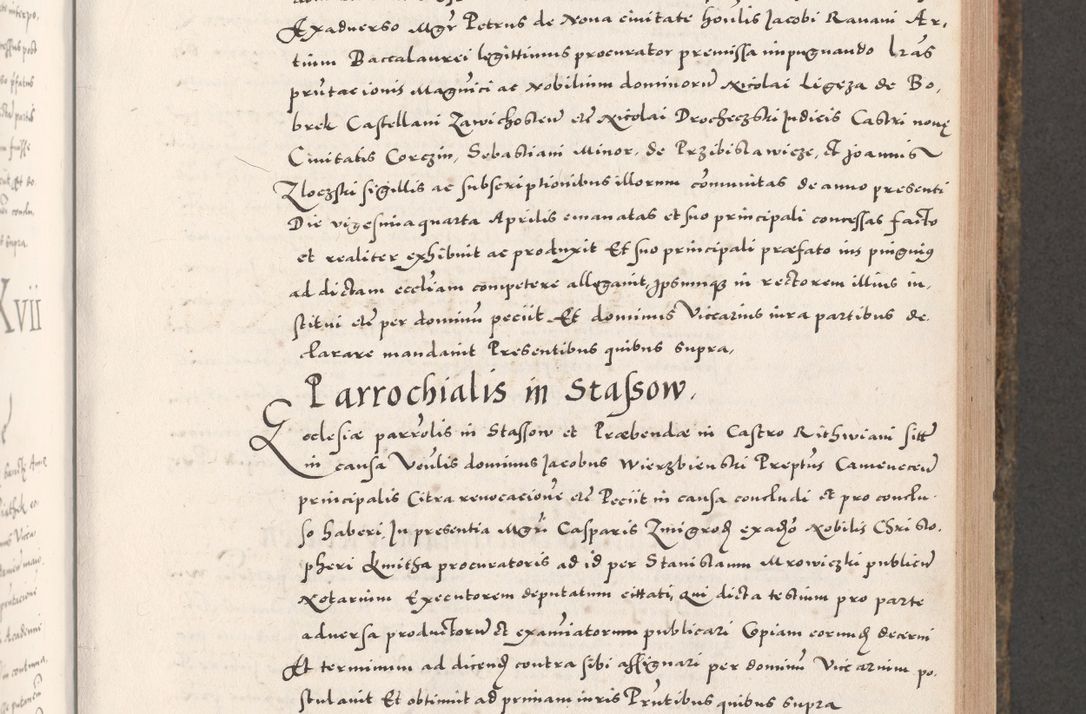 Exadverso Mgr̃ Petrus de Nova civitate hon̄lis Jacobi Ravani Ar,
tium Baccalaurei legittimus procurator premissa inpugnando lr̃as
prñtacionis Magnīci ac Nobilium dominorū Nicolai Ligęza de Bo,
brek Castellani Zawichosten̄ etc̃ Nicolai Drocheczski Judicis Castri novę
Civitatis Corczin, Sebastiani Minor, de Przibislawicze, et Joannis
Zloczski sigillis ac subscriptionibus illorum com̄unitas de anno presenti
Die vigesima quarta Aprilis emanatas et suo principali concessas facto
et realiter exhibuit ac produxit Et suo principali præfato ius pinguiꝯ
ad dictam eccl̃iam competere allegavit, Ipsumqꝫ in rectorem illius in,
stitui etc̃ per dominū peciit Et dominus Vicarius iura partibus de,
clarare mandavit Presentibus quibus supra,
Parrochialis in Stassow,
Ecclesiæ parrõlis in Stassow et Præbendæ in Castro Rithwiani sitt̃
in causa Ven̄lis dominus Jacobus Wierzbienski Preptũs Camenecen̄
principalis Citra revocacionē etc̃ Peciit in causa concludi et pro conclu,
so haberi, In presentia Mgr̃i Casparis Zmigrod exad̃so Nobilis Christo,
pheri Kmitha procuratoris ad id per Stanislaum Mrowiczki publicū
Notarium Executorem deputatum cittati, Qui dicta testium pro parte
adversa productorū et exam̄iatorum publicari Copiam eorund̃ decerni
Et terminum ad dicend̃ contra sibi assignari per dominū Vicarium po,
stulavit Et obtinuit ad primam iuris Prñtibus quibus supra